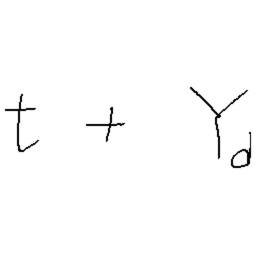 t + Y_d